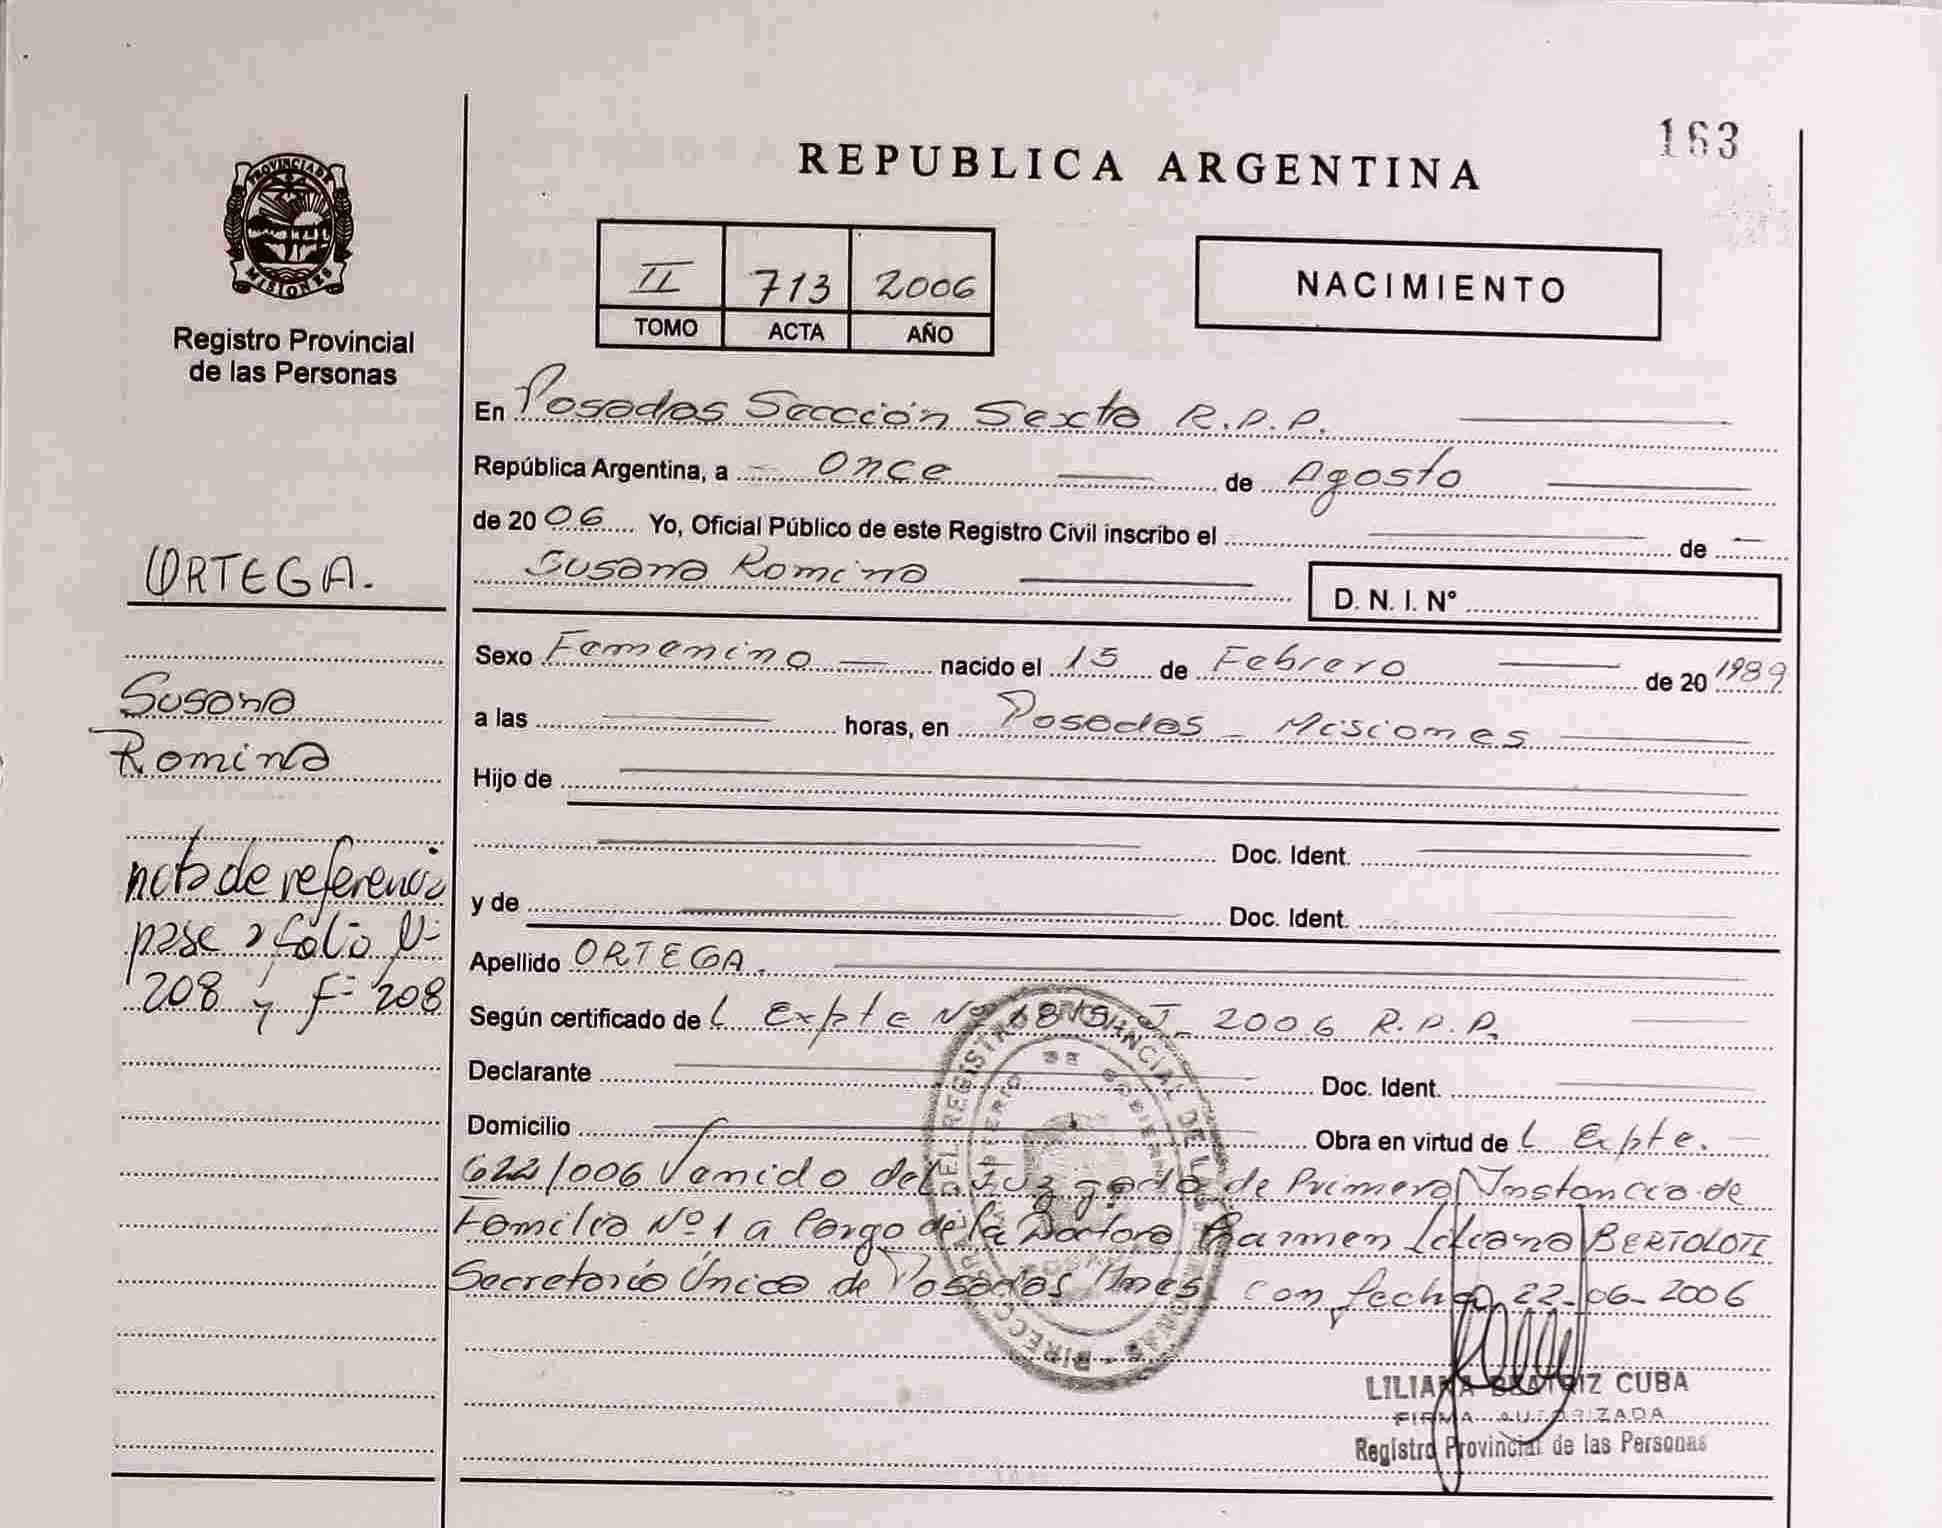 163
REPUBLICA ARGENTINA
PROVINCIA DE
MISIONES
Registro Provincial
de las Personas
II 713 2006
TOMO ACTA AÑO
NACIMIENTO
En Posadas Sección Sexta R.P.P.
República Argentina, a Once de Agosto
de 2006 Yo, Oficial Público de este Registro Civil inscribo el de
Susana Romina
D. N. I. N°
Sexo Femenino nacido el 15 de Febrero de 20 1989
a las horas, en Posadas - Misiones
Hijo de
Doc. Ident.
y de Doc. Ident.
Apellido ORTEGA.
Según certificado de l Expte Nº J- 2006 R.P.P.
Declarante Doc. Ident.
Domicilio Obra en virtud de l Expte.
622/006 Venido del Juzgado de Primera Instancia de
Familia Nº 1 a Cargo de la Doctora Carmen Liliana BERTOLOTI
Secretaría Única de Posadas Mnes. Con fecha 22-06-2006
LILIANA BEATRIZ CUBA
FIRMA AUTORIZADA
Registro Provincial de las Personas
ORTEGA.
Susana
Romina
nota de referencia
pase a folio Nº
208 y Fº 208